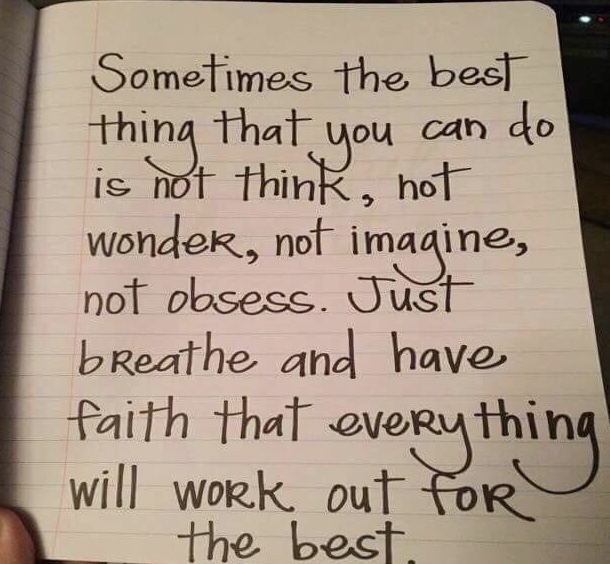 Sometimes the best
thing that you can do
is not think, not
wonder, not imagine,
not obsess. Just
breathe and have
faith that everything
will work out for
the best.